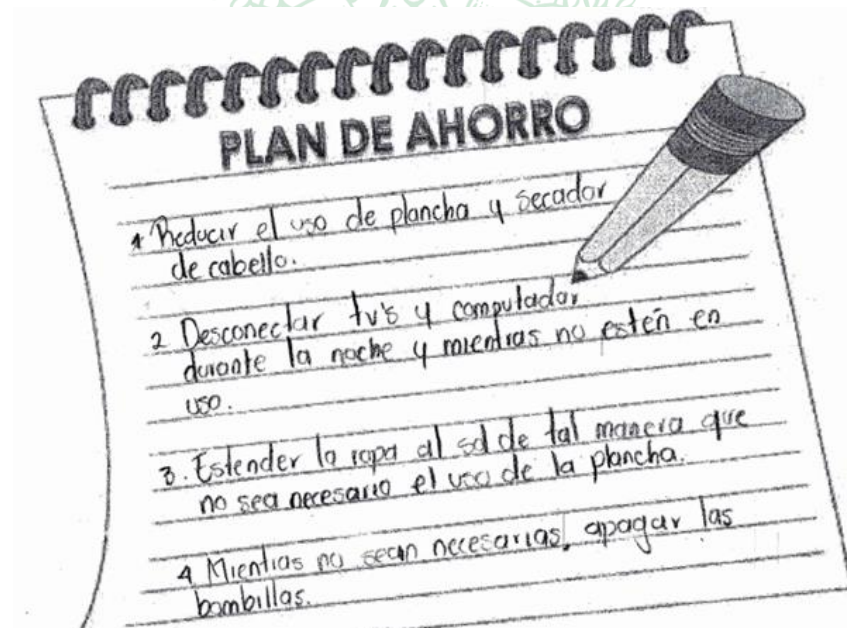 PLAN DE AHORRO
1 Reducir el uso de plancha y secador
de cabello.
2 Desconectar tv's y computador
durante la noche y mientras no estén en
uso.
3. Estender la ropa al sol de tal manera que
no sea necesario el uso de la plancha.
4 Mientras no sean necesarias, apagar las
bombillas.